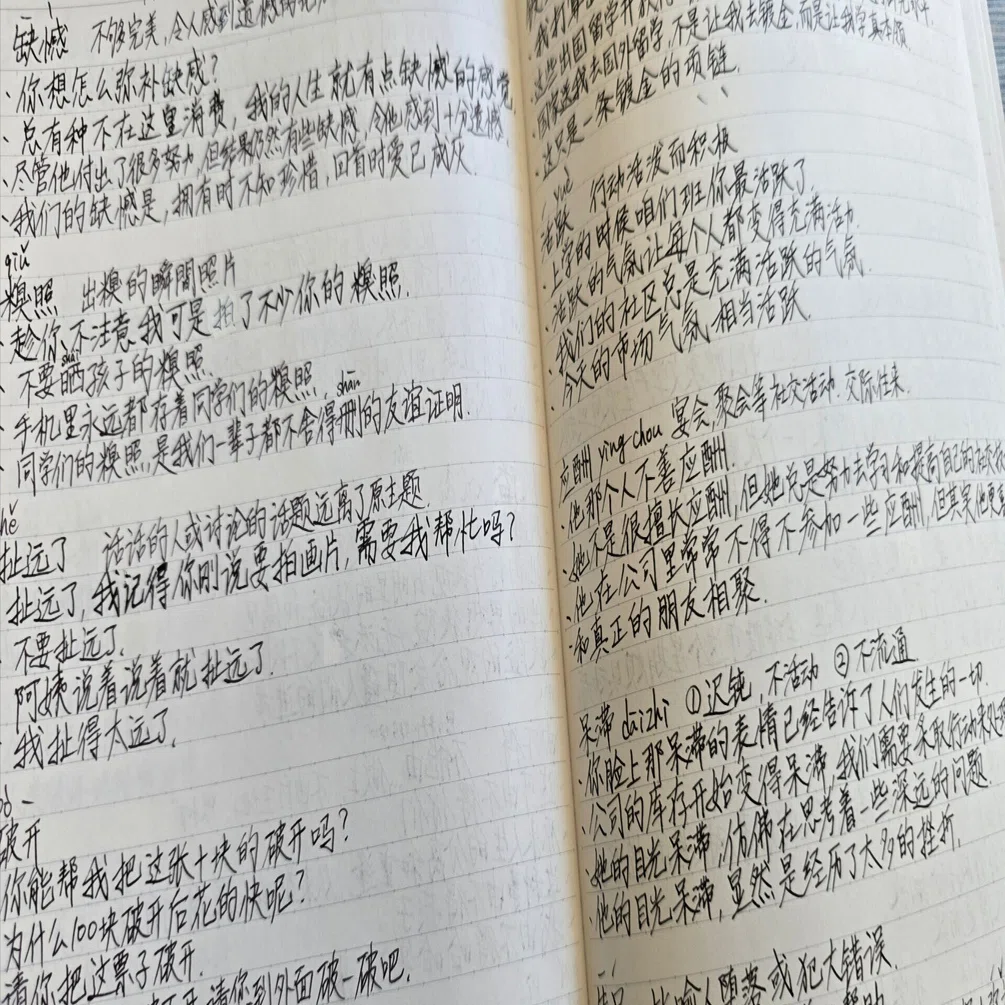 缺憾 不够完美，令人感到遗憾的
·你想怎么弥补缺憾？
·总有种不在这里消费，我的人生就有点缺憾的感觉
·尽管他付出了很多努力，但结果仍然有些缺憾，令他感到十分遗憾.
·我们的缺憾是，拥有时不知珍惜，回首时爱已成灰.
qiǔ
糗照 出糗的瞬間照片
·趁你不注意我可是拍了不少你的糗照.
shài
·不要晒孩子的糗照.
shān
·手机里永远都存着同学们的糗照.
·同学们的糗照是我们一辈子都不舍得删的友谊证明.
扯远了 话话的人或讨论的话题远离了原主题
扯远了，我记得你刚说要拍画片，需要我帮忙吗？
·不要扯远了.
阿姨说着说着就扯远了.
·我扯得太远了.
破开
你能帮我把这张十块的破开吗？
为什么100块破开后花的快呢？
请你把这票子破开.
请你到外面破一破吧.
这些出国留学并
国家送我去国外留学，不是让我去镀金，而是让我学真本领.
·这只是一条镀金的项链.
yuè
活跃 行动活泼而积极
·上学的时候咱们班你最活跃了.
·活跃的气氛让每个人都变得充满活力.
·我们的社区总是充满活跃的气氛.
·今天的市场气氛相当活跃.
应酬 ying chou 宴会，聚会等社交活动.交际往来.
·他那个人不善应酬.
·她不是很擅长应酬，但她总是努力去学习和提高自己的社交
·他在公司里常常不得不参加一些应酬，但其实他更
和真正的朋友相聚.
呆滞 daizhi ①迟钝，不活动 ②不流通
·你脸上那呆滞的表情已经告诉了人们发生的一切.
·公司的库存开始变得呆滞，我们需要采取行动来
·她的目光呆滞，仿佛在思考着一些深远的问题.
他的目光呆滞，显然是经历了太多的挫折.
比喻人堕落或犯大错误.